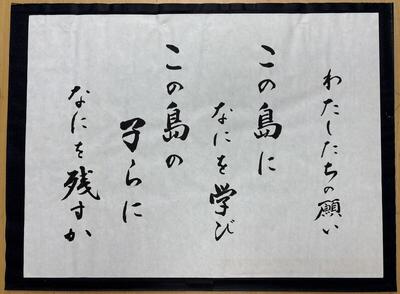 わたしたちの願い
この島に
なにを学び
この島の
子らに
なにを残すか